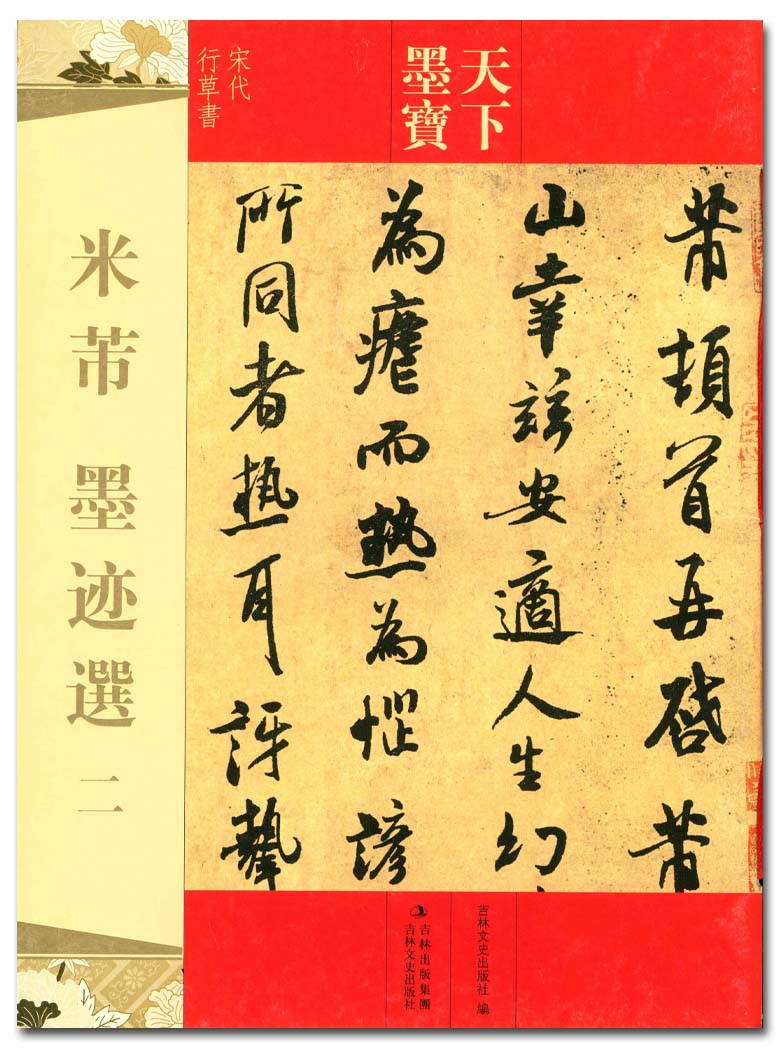 天下
墨寶
宋代
行草書
米芾 墨迹選 二
芾頓首再啓芾
山幸兹安適人生幻
為瘧而熱為惱諺
所同者熱耳訝摯
吉林文史出版社 編
吉林出版集團
吉林文史出版社